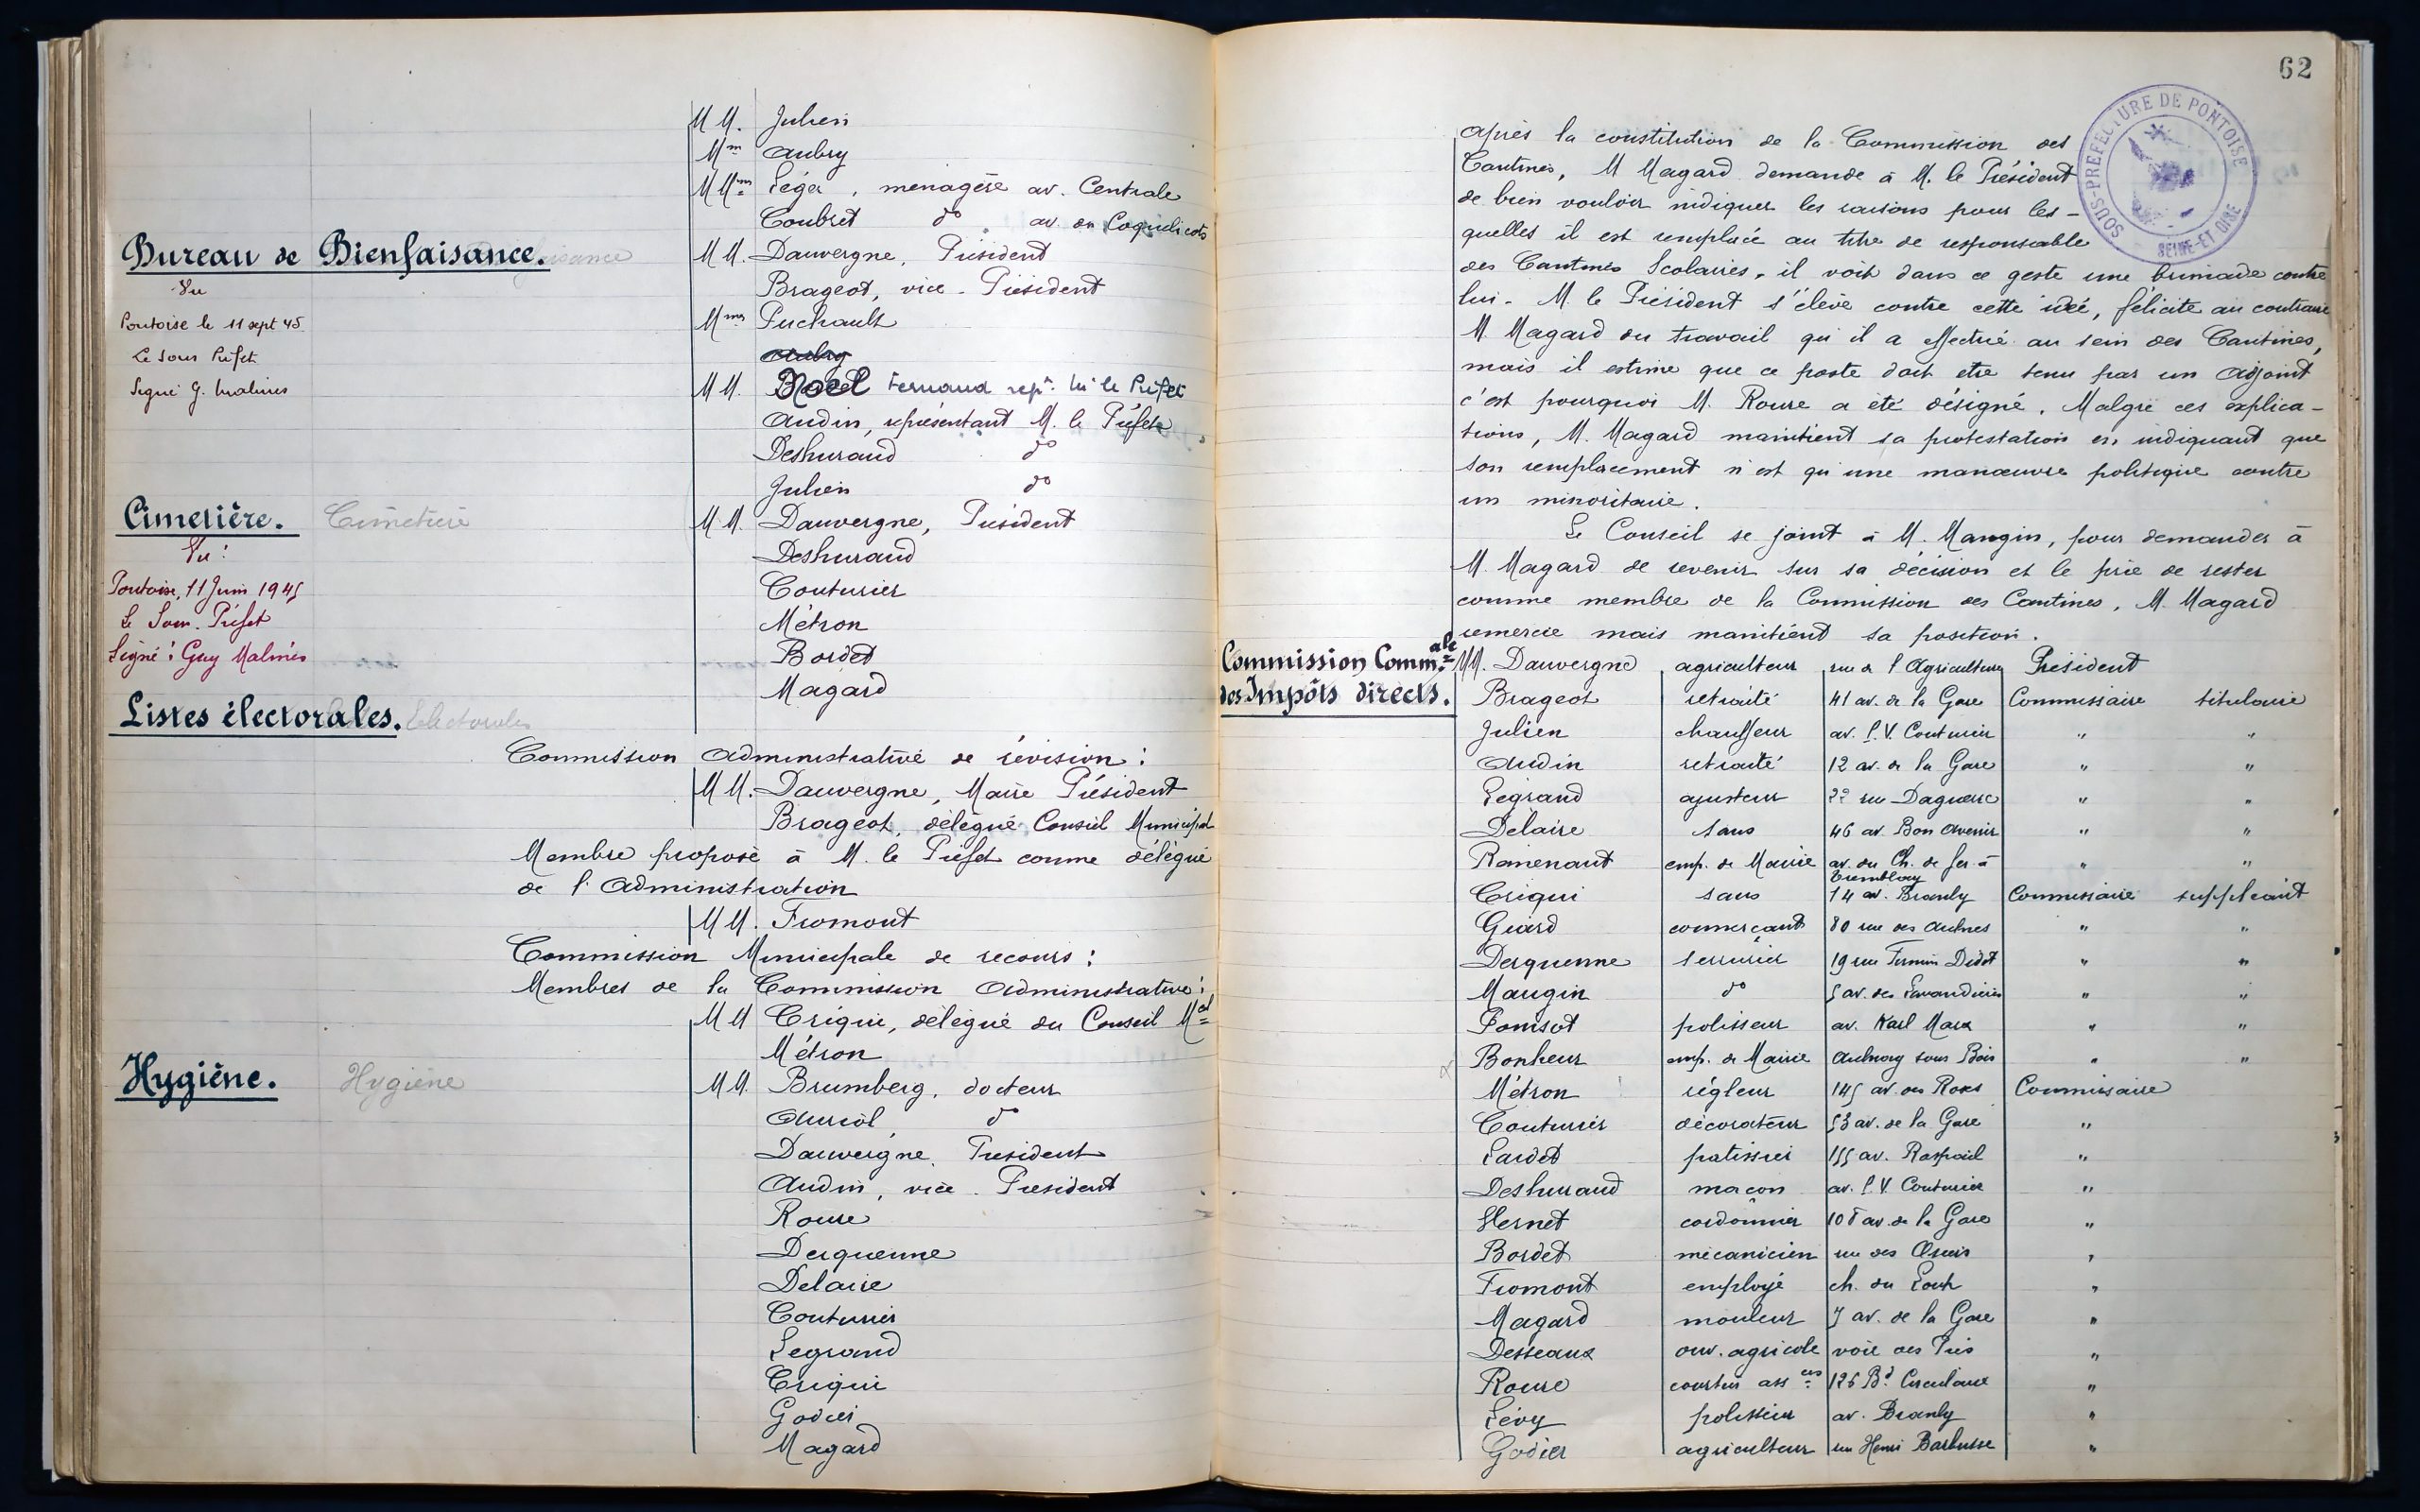 MM. Julien
Mm Aubry
MMmes Léger, ménagère av. Centrale
Coubret do av. des Coquelicots
Bureau de Bienfaisance.
MM. Dauvergne, Président
Vu
Brageot, vice-Président
Pontoise le 11 sept 45
Mmes Puchault
Le Sous Préfet
Aubry
Signé G. Malines
MM. Noël Fernand rept. M le Préfet
Audin, représentant M. le Préfet
Deshuraud do
Julien do
Cimetière. Cimetière
MM. Dauvergne, Président
Vu :
Deshuraud
Pontoise, 11 Juin 1945
Couturier
Le Sous-Préfet
Métron
Signé : Guy Malines
Bordet
Magard
Listes électorales. Electorales
Commission Administrative de révision :
MM. Dauvergne, Maire Président
Brageot, délégué Conseil Municipal
Membre proposé à M. le Préfet comme délégué
de l'Administration
MM. Fromont
Commission Municipale de recours :
Membres de la Commission Administrative :
MM Criqui, délégué du Conseil Mal
Métron
Hygiène. Hygiène
MM. Brumberg, docteur
Auriol, do
Dauvergne, Président
Audin, vice-Président
Roure
Derquenne
Delaire
Couturier
Legrand
Criqui
Godier
Magard
62
SOUS-PREFECTURE DE PONTOISE
SEINE-ET-OISE
Après la constitution de la Commission des
Cantines, M Magard demande à M. le Président
de bien vouloir indiquer les raisons pour les-
quelles il est remplacé au titre de responsable
des Cantines Scolaires, il voit dans ce geste une brimade contre
lui. M. le Président s'élève contre cette idée, félicite au contraire
M. Magard du travail qu'il a effectué au sein des Cantines,
mais il estime que ce poste doit etre tenu par un Adjoint
c'est pourquoi M. Roure a été désigné. Malgré ces explica-
tions, M. Magard maintient sa protestation en indiquant que
son remplacement n'est qu'une manœuvre politique contre
un minoritaire.
Le Conseil se joint à M. Mangin, pour demander à
M. Magard de revenir sur sa décision et le prie de rester
comme membre de la Commission des Cantines, M. Magard
remercie mais maintient sa position.
Commission Comm.ale
des Impôts directs.
MM. Dauvergne agriculteur rue de l'Agriculture Président
Brageot retraité 41 av. de la Gare Commissaire titulaire
Julien chauffeur av. P.V. Couturier " "
Audin retraité 12 av. de la Gare " "
Legrand ajusteur 22 rue Daguerre " "
Delaire sans 46 av. Bon Avenir " "
Ramenant emp. de Mairie av. du Ch. de fer à Tremblay " "
Criqui sans 14 av. Branly Commissaire suppléant
Giard commerçant 80 rue des Aulnes " "
Derquenne serrurier 19 rue Firmin Didot " "
Mangin do 5 av. des Lavandières " "
Ponsot polisseur av. Karl Marx " "
Bonheur emp. de Mairie Aulnay sous Bois " "
Métron régleur 145 av. des Roses Commissaire
Couturier décorateur 53 av. de la Gare "
Lardet patissier 155 av. Raspail "
Deshuraud maçon av. P.V. Couturier "
Hernet cordonnier 108 av. de la Gare "
Bordet mécanicien rue des "
Fromont employé ch. du "
Magard mouleur 7 av. de la Gare "
Desseaux ouv. agricole voie des Prés "
Roure courtier ass ces 126 Bd Circulaire "
Lévy polisseur av. Branly "
Godier agriculteur rue Henri Barbusse "